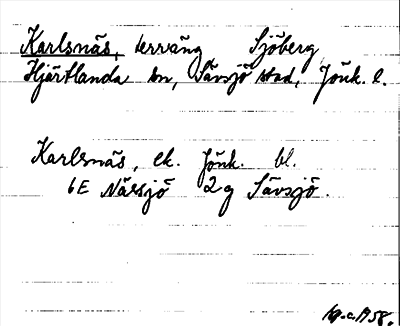 Karlsnäs, terräng Sjöberg
Hjärtlanda sn, Sävsjö stad, Jönk. l.
Karlsnäs, ek. Jönk. bl.
6E Nässjö 2g Sävsjö.
1958.